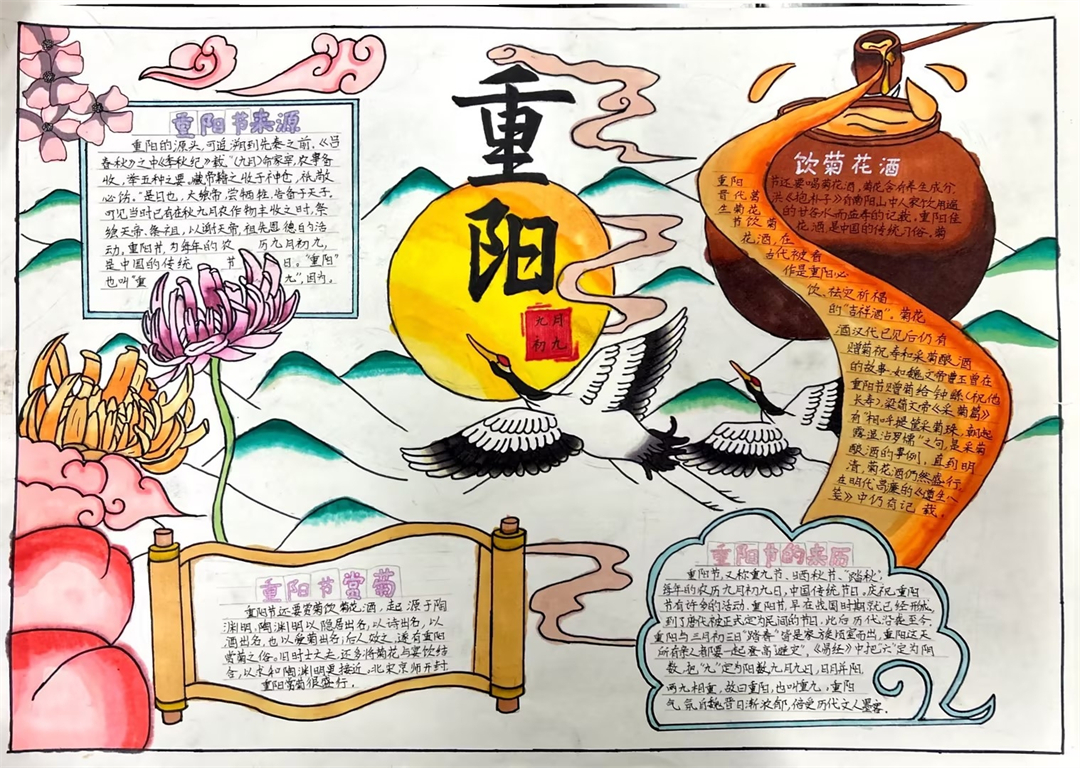 重阳
九月
初九
重阳节来源
重阳的源头,可追溯到先秦之前,《吕
春秋》之中《季秋纪》载:"(九月)命家宰,农事备
收,举五种之要。藏帝籍之收于神仓,祗敬
必饬。"是日也,大飨帝,尝牺牲,告备于天子。
可见当时已有在秋九月农作物丰收之时,祭
飨天帝、祭祖,以谢天帝、祖先恩德的活
动。重阳节,为每年的农 历九月初九,
是中国的传统 节 日。"重阳"
也叫"重 九",因为。
饮菊花酒
重阳 节还要喝菊花酒,菊花含有养生成分,
晋代葛 洪《抱朴子》有南阳山中人家饮用遍
生菊花 的甘谷水而益寿的记载。重阳佳
节饮菊 花酒,是中国的传统习俗。菊
花酒,在
古代被看
作是重阳必
饮、祛灾祈福
的"吉祥酒"。菊花
酒汉代已见后仍有
赠菊祝寿和采菊酿酒
的故事。如魏文帝曹丕曾在
重阳节赠菊给钟繇(祝他
长寿)。梁简文帝《采菊篇》
有"相呼提筐采菊珠,朝起
露湿沾罗襦"之句,是采菊
酿酒的事例。直到明
清,菊花酒仍然盛行,
在明代高濂的《遵生八
笺》中仍有记载。
重阳节赏菊
重阳节还要赏菊饮菊花酒,起源于陶
渊明。陶渊明以隐居出名,以诗出名,以
酒出名,也以爱菊出名;后人效之,遂有重阳
赏菊之俗。旧时士大夫,还多将菊花与宴饮结
合,以求和陶渊明更接近。北宋京师开封,
重阳赏菊很盛行。
重阳节的来历
重阳节,又称重九节、晒秋节、"踏秋",
每年的农历九月初九日,中国传统节日。庆祝重阳
节有许多的活动,重阳节,早在战国时期就已经形成,
到了唐代被正式定为民间的节日,此后历代沿袭至今。
重阳与三月初三日"踏春"皆是家族倾室而出,重阳这天
所有亲人都要一起登高避灾",《易经》中把"六"定为阴
数,把"九"定为阳数,九月九日,日月并阳,
两九相重,故曰重阳,也叫重九,重阳
气氛自魏晋日渐浓郁,倍受历代文人墨客。